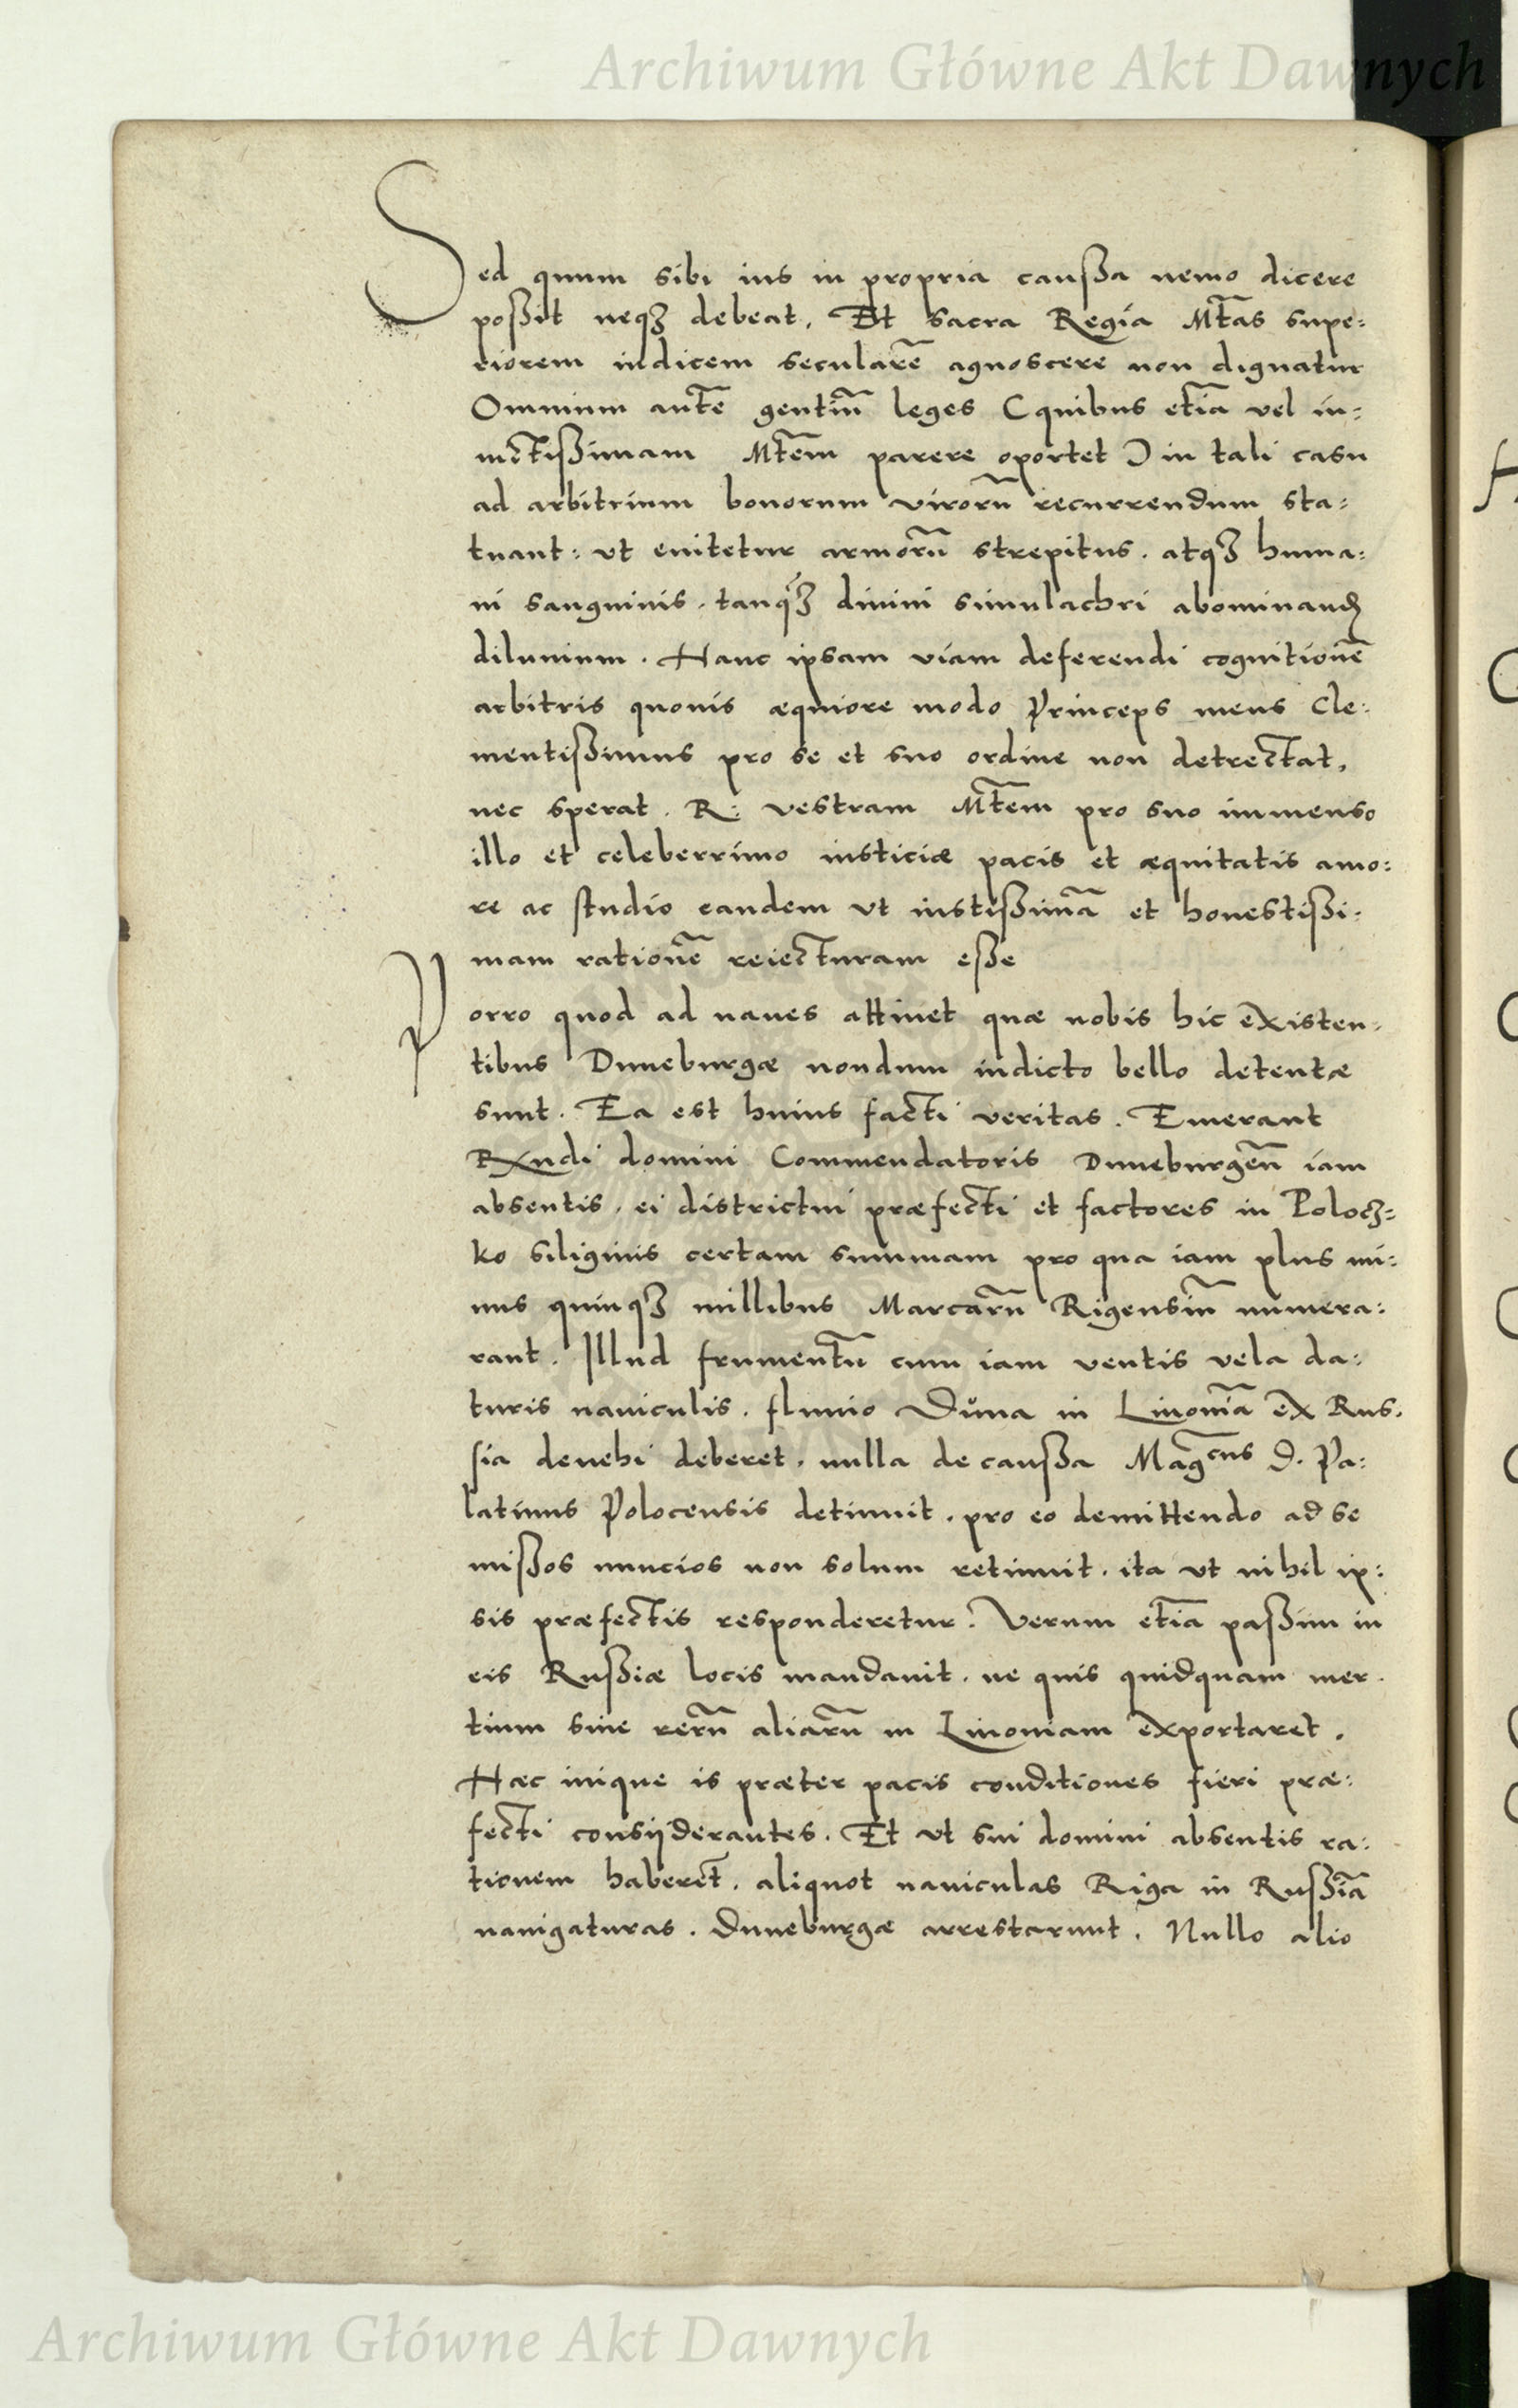 Archiwum Główne Akt Dawnych
Sed quum sibi ius in propria caußa nemo dicere
poßit neqʒ debeat. Et sacra Regia Mt̃as supe:
riorem iudicem secularẽ agnoscere non dignatur
Omnium autẽ gentiũ leges (quibus etiã vel in:
uictißimam Mt̃em parere oportet) in tali casu
ad arbitrium bonorum virorũ recurrendum sta:
tuant: vt euitetur armorũ strepitus. atqʒ huma:
ni sanguinis. tanq̃ʒ diuini simulachri abominand
diluuium. Hanc ipsam viam deferendi cognitionẽ
arbitris quouis æquiore modo Princeps meus Cle:
mentißimus pro se et suo ordine non detrectat,
nec sperat. R: vestram Mt̃em pro suo immenso
illo et celeberrimo iusticiæ pacis et æquitatis amo:
re ac studio eandem vt iustißimã et honestißi:
mam rationẽ reiecturam eße
Porro quod ad naues attinet quæ nobis hic existen:
tibus Duneburgæ nondum indicto bello detentæ
sunt. Ea est huius facti veritas. Emerant
Rxndi domini Commendatoris Duneburgeñ iam
absentis, ei districtui præfecti et factores in Polocz=
ko siliginis certam summam pro qua iam plus mi:
nus quinqʒ millibus Marcarũ Rigensiũ numera:
rant. Illud frumentũ cum iam ventis vela da:
turis nauiculis. fluuio Dŭna in Liuoniã ex Rus.
sia deuehi deberet. nulla de caußa Mag̃cus D. Pa:
latinus Polocensis detinuit. pro eo demittendo ad se
mißos nuncios non solum retinuit. ita vt nihil ip:
sis præfectis responderetur. Verum etiã paßim in
eis Rußiæ locis mandauit. ne quis quidquam mer.
tium siue rerũ aliarũ in Liuoniam exportaret.
Hæc inique is præter pacis conditiones fieri præ:
fecti consijderantes. Et vt sui domini absentis ra:
tionem haberet̃. aliquot nauiculas Riga in Rußiã
nauigaturas. Duneburgæ arrestarunt. Nullo alio
Archiwum Główne Akt Dawnych